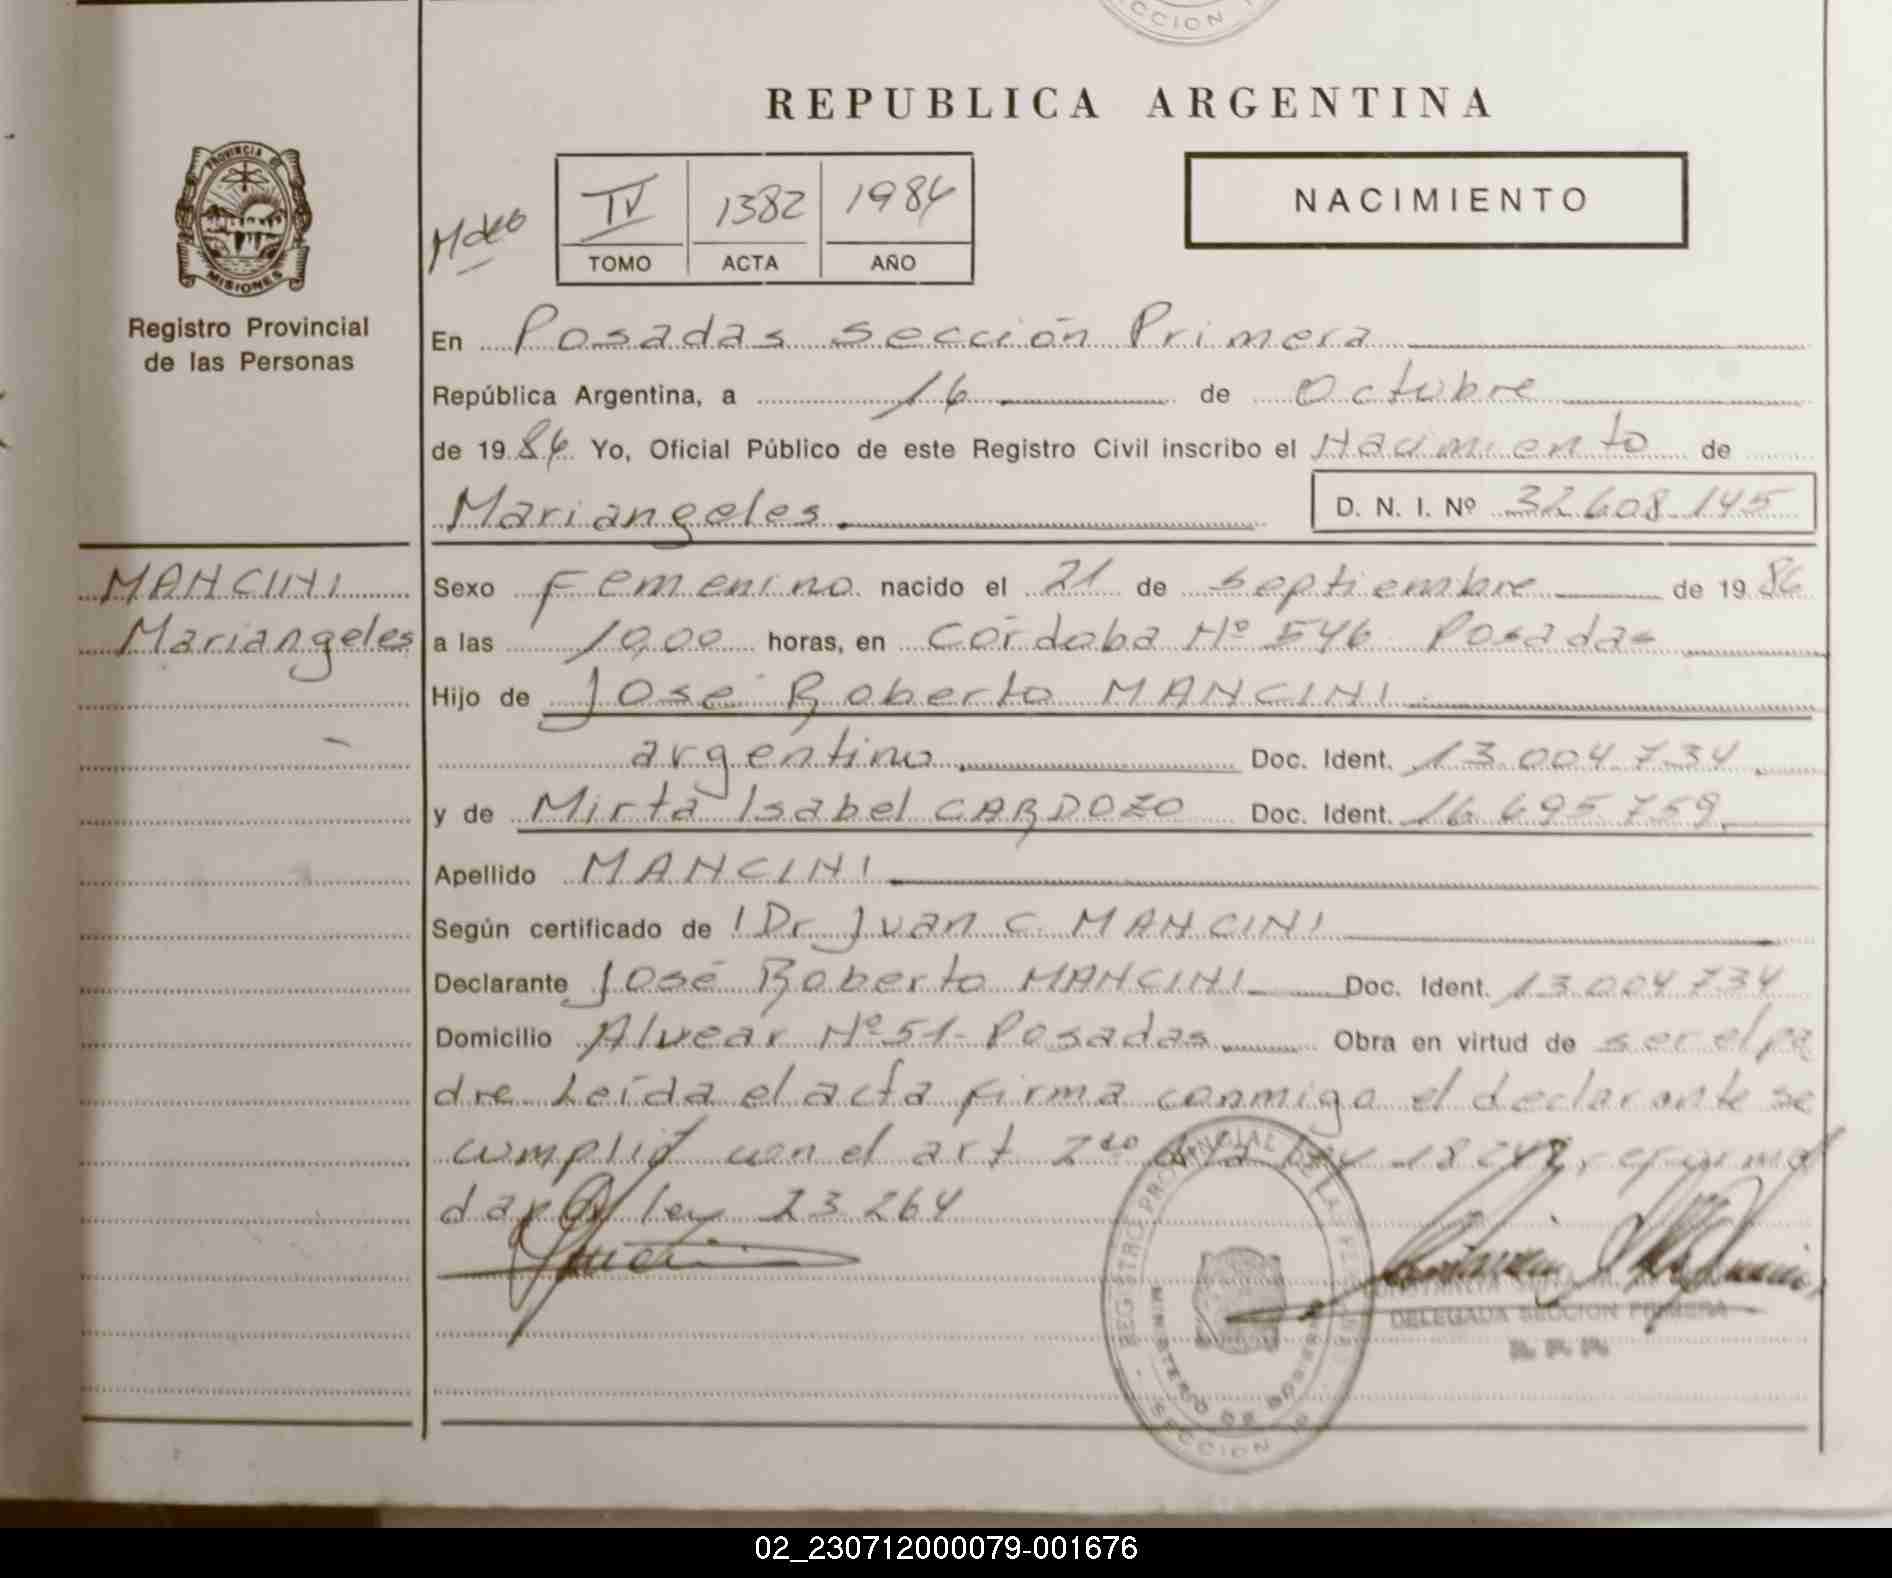 CCION
REPUBLICA ARGENTINA
PROVINCIA DE
MISIONES
Registro Provincial
de las Personas
IV 1382 1986
TOMO ACTA AÑO
NACIMIENTO
En Posadas sección Primera
República Argentina, a 16 de Octubre
de 1986 Yo, Oficial Público de este Registro Civil inscribo el Nacimiento de
Mariangeles D. N. I. Nº 32.608.145
MANCINI
Mariangeles
Sexo Femenino nacido el 21 de septiembre de 1986
a las 10,00 horas, en Córdoba Nº 546 Posadas
Hijo de José Roberto MANCINI
argentino Doc. Ident. 13.004.734
y de Mirta Isabel CARDOZO Doc. Ident. 16.695.759
Apellido MANCINI
Según certificado de Dr Juan C. MANCINI
Declarante José Roberto MANCINI Doc. Ident. 13.004.734
Domicilio Alvear Nº 51- Posadas Obra en virtud de ser el pa
dre Leída el acta firma conmigo el declarante se
cumplió con el art 2do de la ley 18.248, reforma
da por ley 23.264
REGISTRO PROVINCIAL DE LAS PERSONAS
MINISTERIO DE GOBIERNO
SECCION 1a
DELEGADA SECCION PRIMERA
R. P. P.
02_230712000079-001676